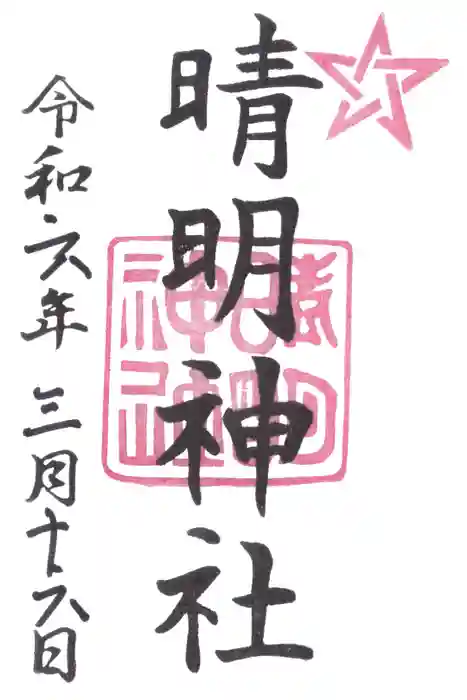 晴明神社
晴明神社
令和六年 三月十六日